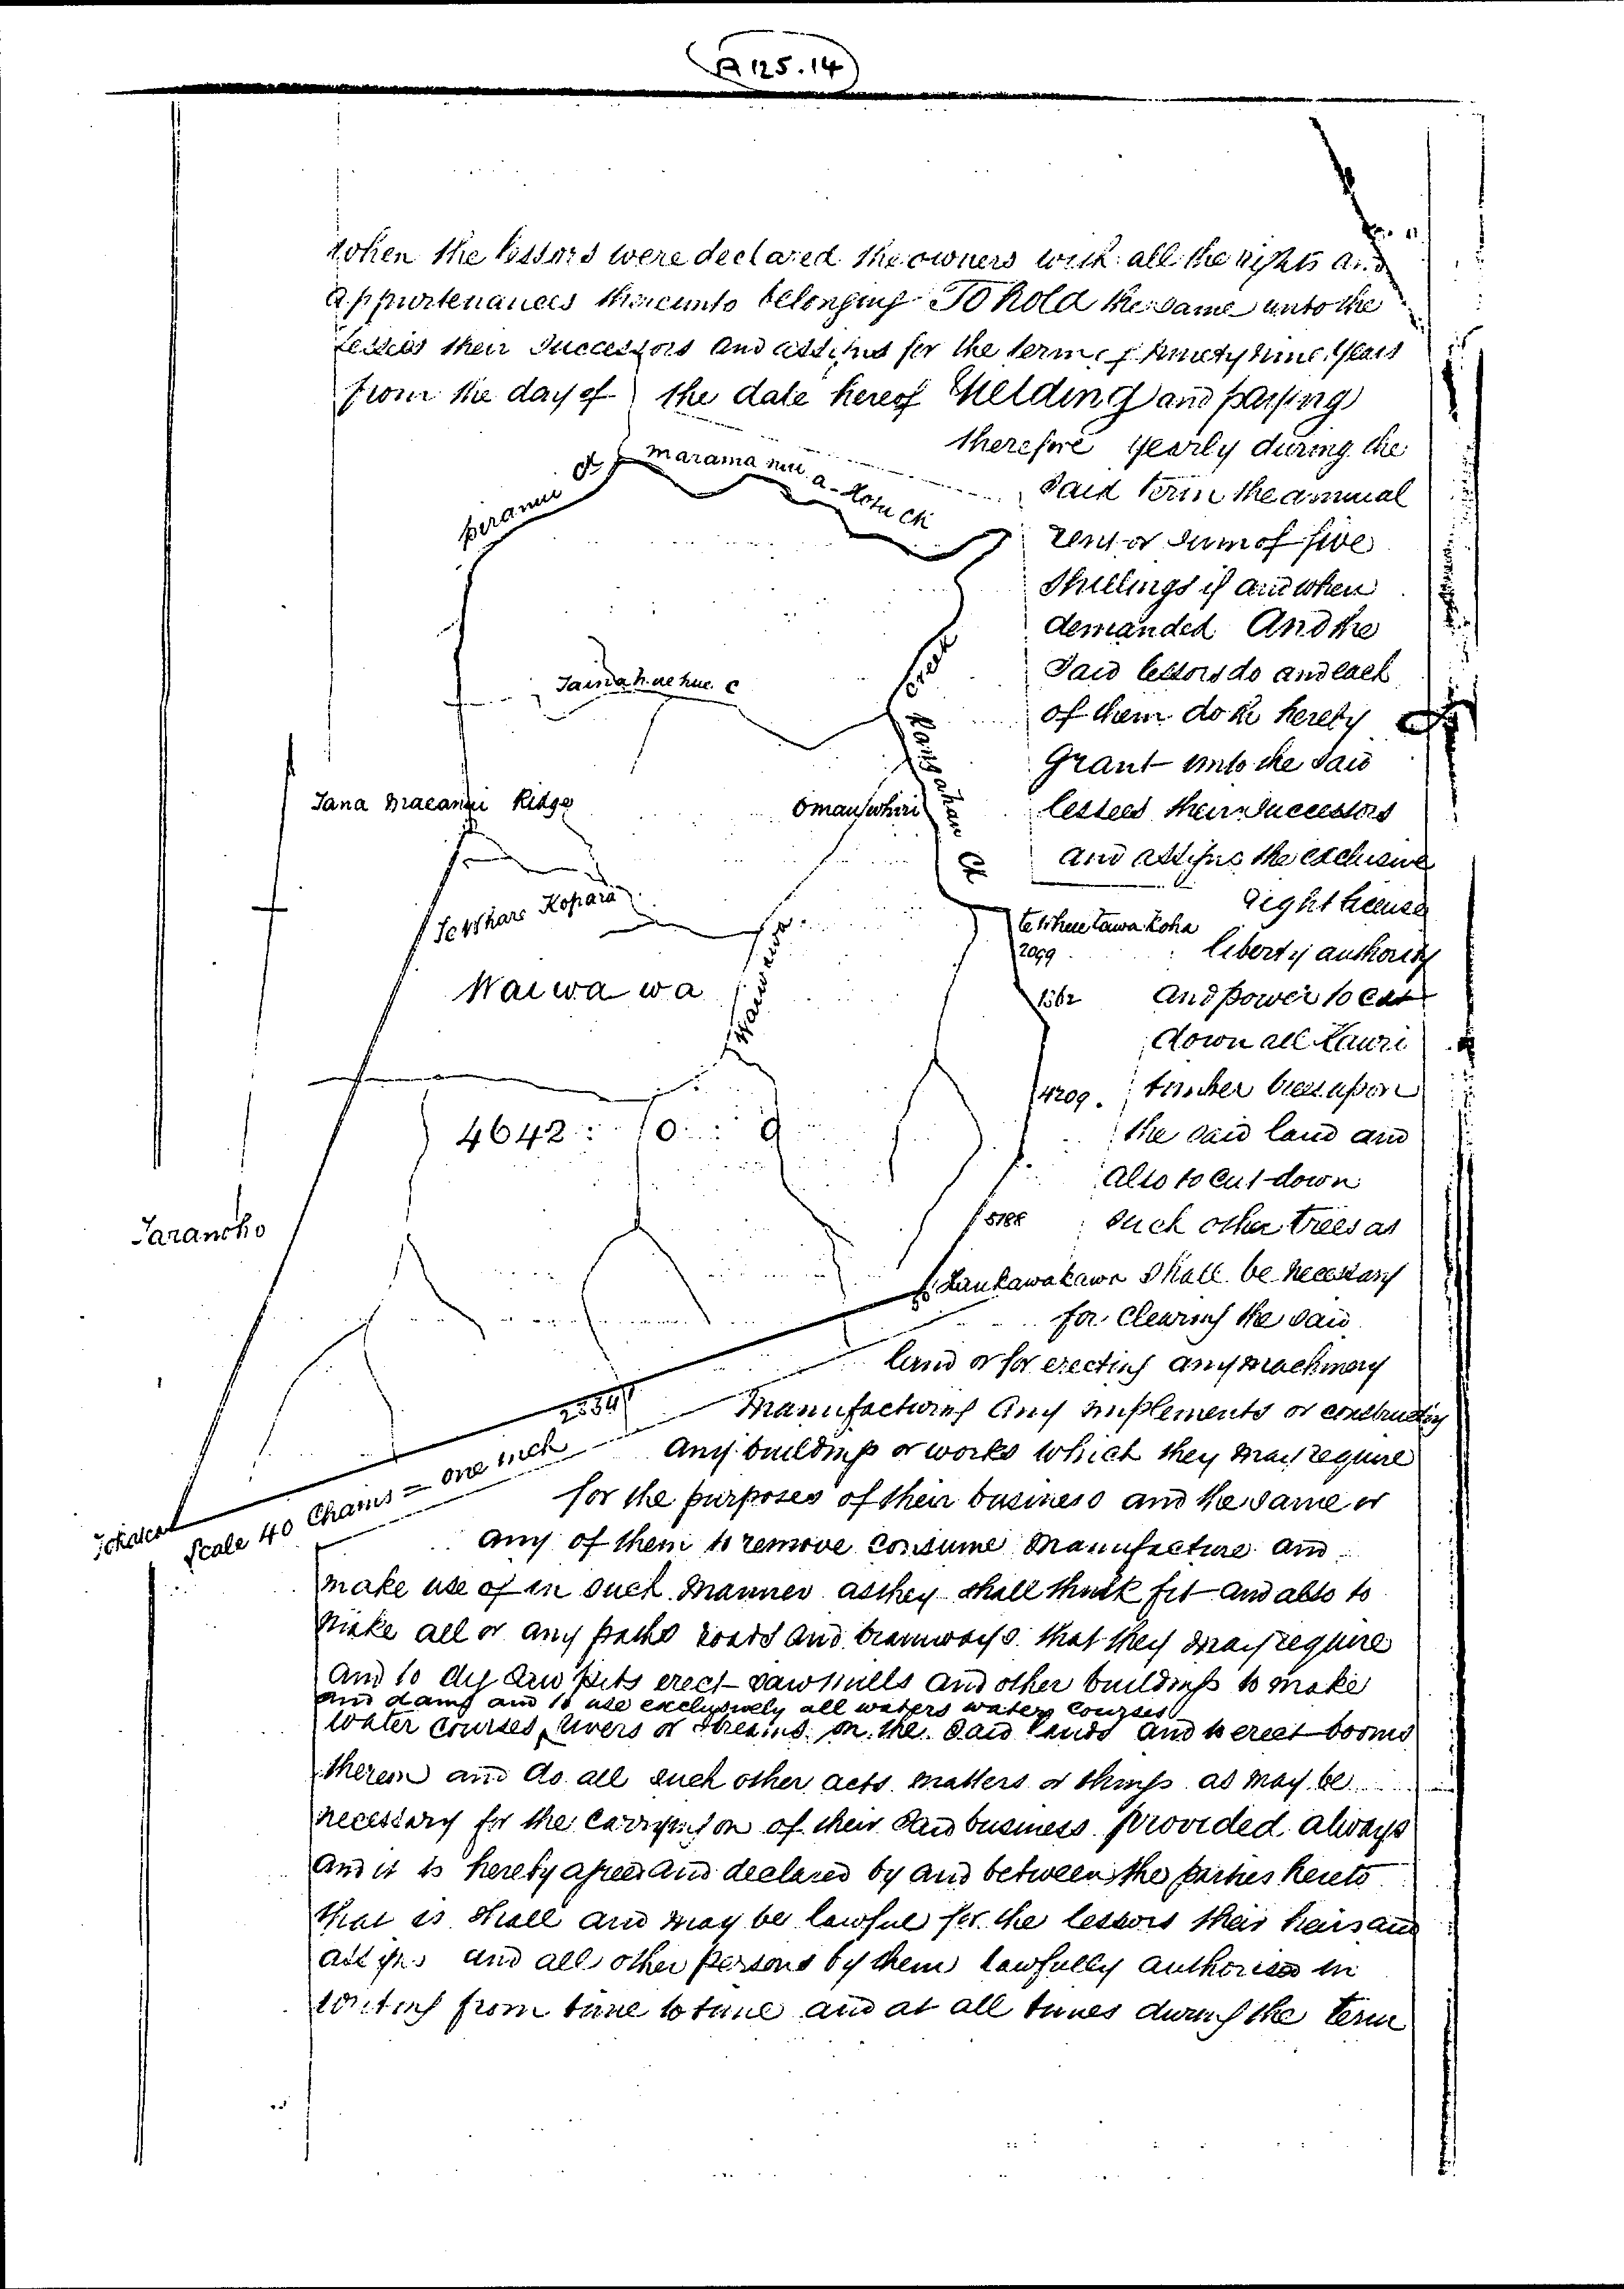 A 125.14
when the lessors were declared the owners with all the rights and
appurtenances thereunto belonging To hold the same unto the
Lessees their Successors and assigns for the term of Ninety nine Years
from the day of the date hereof Yielding and paying
therefore yearly during the
Said term the annual
rent or sum of five
Shillings if and when
demanded And the
Said lessors do and each
of them doth hereby
Grant unto the Said
lessees their Successors
and assigns the exclusive
right license
liberty authority
and power to cut
down all Kauri
timber trees upon
the said land and
also to cut down
such other trees as
shall be necessary
for clearing the said
land or for erecting any machinery
Manufacturing any implements or constructing
any buildings or works which they may require
for the purposes of their business and the same or
any of them to remove consume Manufacture and
make use of in such manner as they shall think fit and also to
make all or any paths roads and tramways that they may require
and to dig saw pits erect sawmills and other buildings to make
and dams and to use exclusively all waters water courses
water courses rivers or streams on the said lands and to erect booms
therein and do all such other acts matters or things as may be
necessary for the carrying on of their said business provided always
and it is hereby agreed and declared by and between the parties hereto
that is shall and may be lawful for the lessors their heirs and
assigns and all other persons by them lawfully authorised in
writing from time to time and at all times during the term
Creek
Omaruwhiri
Ridge
Te Whare Kopara
2099
1362
Waiwawa
Waiwawa
4209
4642 : 0 : 0
5188
2334
Scale 40 Chains = one inch